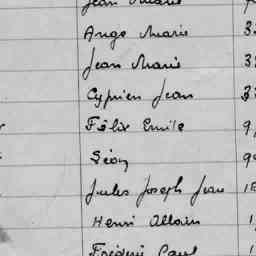 Jean Marie
Ange Marie 33
Jean Marie 33
Cyprien Jean 33
Félix Emile 9
Léon 9
Jules Joseph Jean 18
Henri Allain 1
Frédéric Paul 1